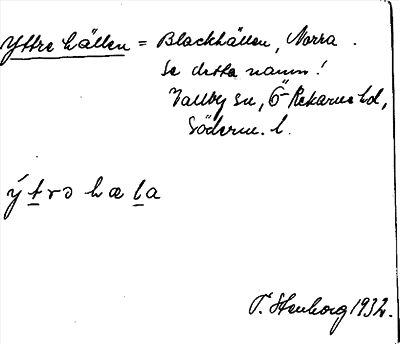 Yttre hällen = Blackhällen, Norra.
Se detta namn!
Vallby sn, Ö-Rekarne hd,
Söderm. l.
ýtrə hæla
T. Stenborg 1932.